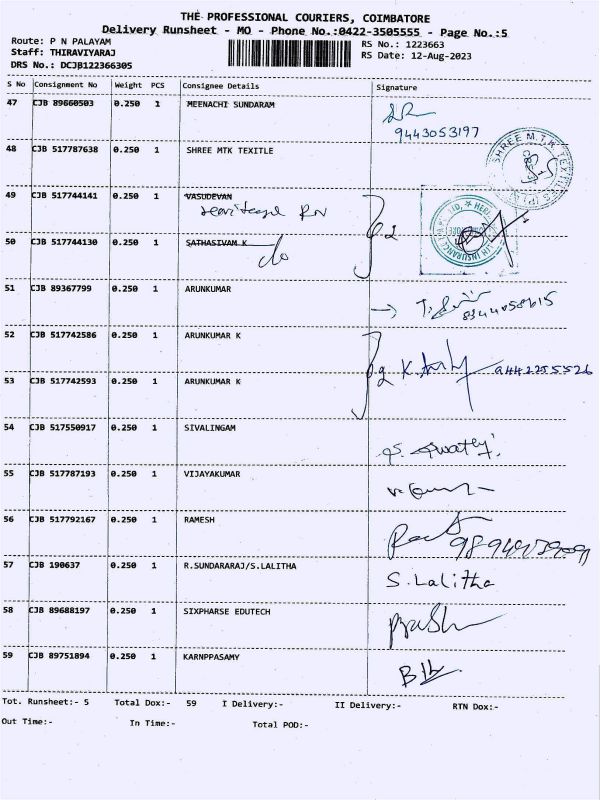 THE PROFESSIONAL COURIERS, COIMBATORE
Delivery Runsheet - MO - Phone No.:0422-3505555 - Page No.:5
Route: P N PALAYAM
RS No.: 1223663
Staff: THIRAVIYARAJ
RS Date: 12-Aug-2023
DRS No.: DCJB122366305
S No Consignment No Weight PCS Consignee Details Signature
47 CJB 89660503 0.250 1 MEENACHI SUNDARAM
9443053197
48 CJB 517787638 0.250 1 SHREE MTK TEXITLE
SHREE M.T.K. TEXTILES (P) L
49 CJB 517744141 0.250 1 VASUDEVAN
50 CJB 517744130 0.250 1 SATHASIVAM K
51 CJB 89367799 0.250 1 ARUNKUMAR
52 CJB 517742586 0.250 1 ARUNKUMAR K
9442255526
53 CJB 517742593 0.250 1 ARUNKUMAR K
54 CJB 517550917 0.250 1 SIVALINGAM
55 CJB 517787193 0.250 1 VIJAYAKUMAR
56 CJB 517792167 0.250 1 RAMESH
57 CJB 190637 0.250 1 R.SUNDARARAJ/S.LALITHA S.Lalitha
58 CJB 89688197 0.250 1 SIXPHARSE EDUTECH
59 CJB 89751894 0.250 1 KARNPPASAMY
Tot. Runsheet:- 5 Total Dox:- 59 I Delivery:- II Delivery:- RTN Dox:-
Out Time:- In Time:- Total POD:-